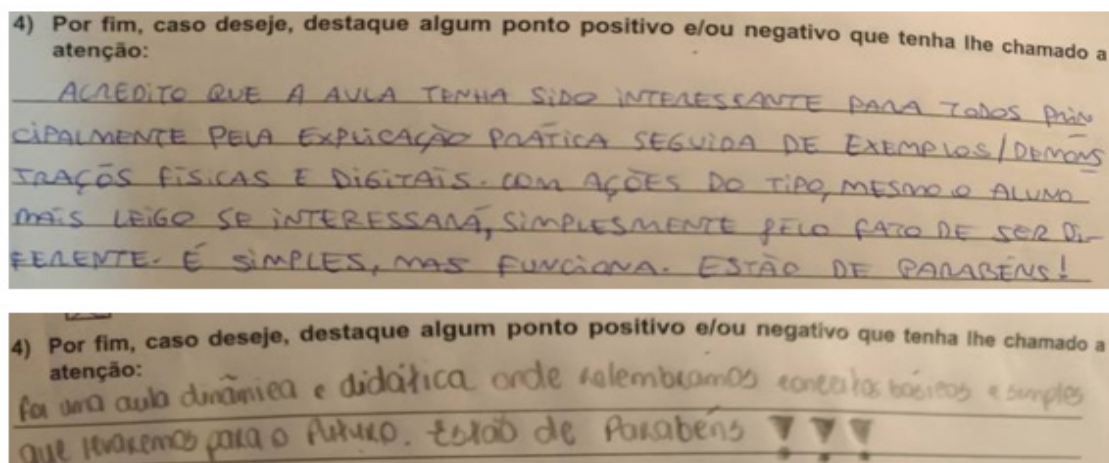 4) Por fim, caso deseje, destaque algum ponto positivo e/ou negativo que tenha lhe chamado a
atenção:
ACREDITO QUE A AULA TENHA SIDO INTERESSANTE PARA TODOS PRIN
CIPALMENTE PELA EXPLICAÇÃO PRÁTICA SEGUIDA DE EXEMPLOS/DEMONS
TRAÇÕS FÍSICAS E DIGITAIS. COM AÇÕES DO TIPO, MESMO O ALUNO
MAIS LEIGO SE INTERESSARÁ, SIMPLESMENTE PELO FATO DE SER DI-
FERENTE. É SIMPLES, MAS FUNCIONA. ESTÃO DE PARABÉNS!
4) Por fim, caso deseje, destaque algum ponto positivo e/ou negativo que tenha lhe chamado a
atenção:
foi uma aula dinâmica e didática onde relembramos conceitos básicos e simples
que levaremos para o futuro. Estão de Parabéns !!!